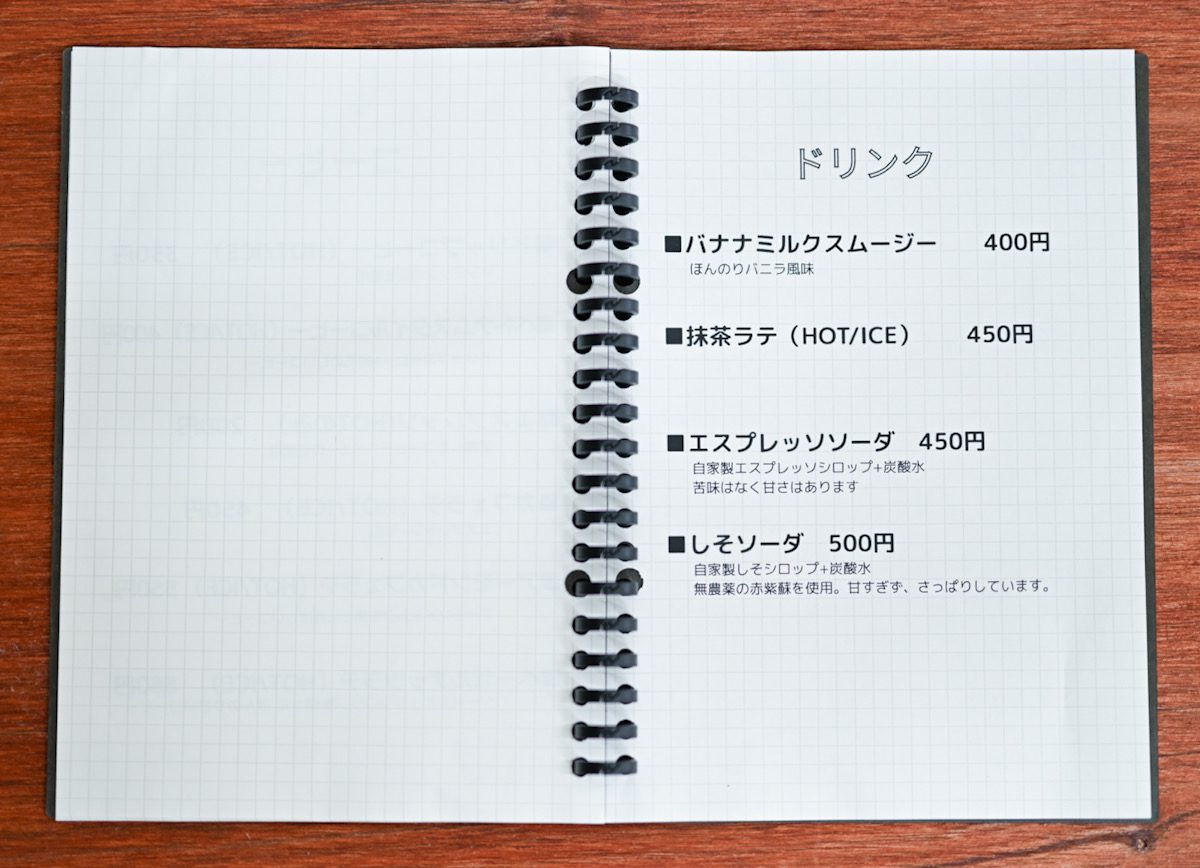 ドリンク
■バナナミルクスムージー 400円
ほんのりバニラ風味
■抹茶ラテ（HOT/ICE） 450円
■エスプレッソソーダ 450円
自家製エスプレッソシロップ+炭酸水
苦味はなく甘さはあります
■しそソーダ 500円
自家製しそシロップ+炭酸水
無農薬の赤紫蘇を使用。甘すぎず、さっぱりしています。